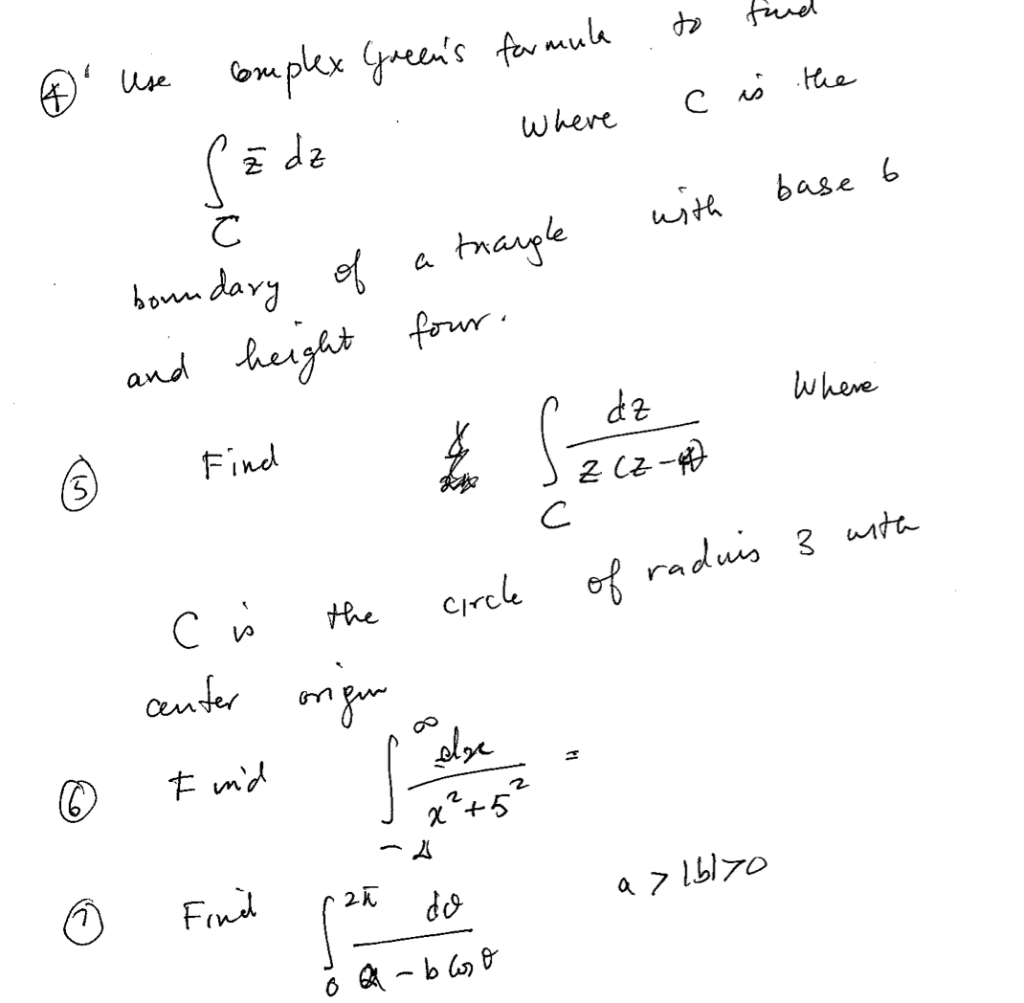 ④' Use complex Green's formula to find
∫_C z̄ dz where C is the
boundary of a triangle with base 6
and height four.
⑤ Find ∫_C dz / z(z-4) where
C is the circle of radius 3 with
center origin
⑥ Find ∫_{-∞}^{∞} dx / x²+5² =
⑦ Find ∫_0^{2π} dθ / a - b cos θ a > |b| > 0